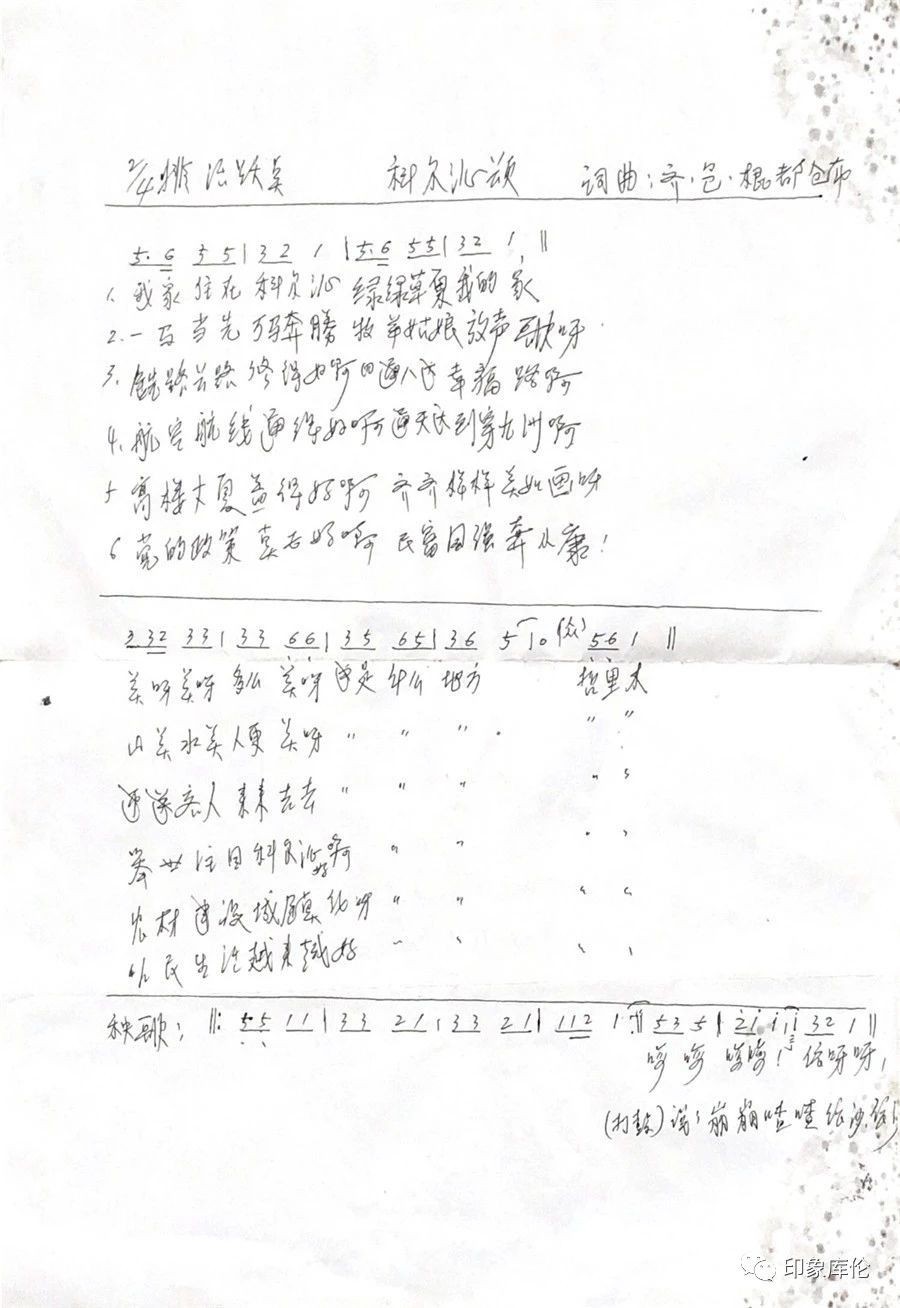 2/4拍 活跃 科尔沁颂 词曲：齐·包·棍都仓布
5·6 55|32 1|5·6 55|32 1||
1、我家住在科尔沁 绿绿草原我的家
2、一马当先万马奔腾 牧羊姑娘放声歌呀
3、铁路公路修得好啊 四通八达幸福路啊
4、航空航线通得好啊 通天达到穿九州啊
5 高楼大厦盖得好啊 齐齐样样美如画呀
6 党的政策真正好啊 民富国强奔小康！
3 32 33|33 66|35 65|36 5 10 (众) 56 1||
美呀美呀多么美呀 这是什么地方 哲里木
山美水美人更美呀 〃 〃 〃 〃 〃
迎送客人来来去去 〃 〃 〃 〃 〃
举世注目科尔沁好啊 〃 〃 〃 〃
农村建设城镇化呀 〃 〃 〃 〃
人民生活越来越好 〃 〃 〃 〃
秧歌：||:55 11|33 21|33 21|112 1:||535|21 11 32 1||
咳 咳 咳咳！ 呀呀，
(打鼓) 说：崩崩喳喳
印象库伦